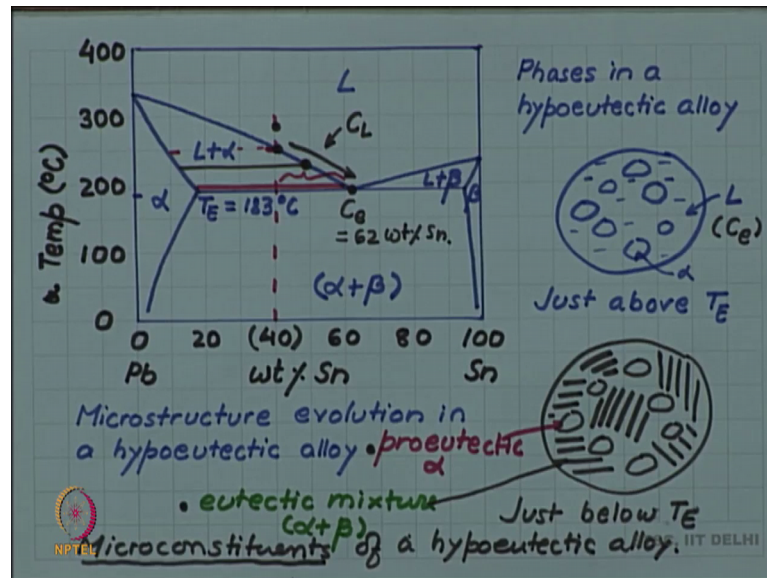 400
300
200
100
0
Temp (°C)
L
L+α
C_L
α
T_E = 183°C
C_e
= 62 wt% Sn.
L+β
β
(α+β)
0 20 (40) 60 80 100
Pb wt% Sn Sn
Phases in a
hypoeutectic alloy
L
(C_e)
α
Just above T_E
Microstructure evolution in
a hypoeutectic alloy • proeutectic
α
• eutectic mixture
(α+β)
Just below T_E
Microconstituents of a hypoeutectic alloy.
NPTEL
IIT DELHI